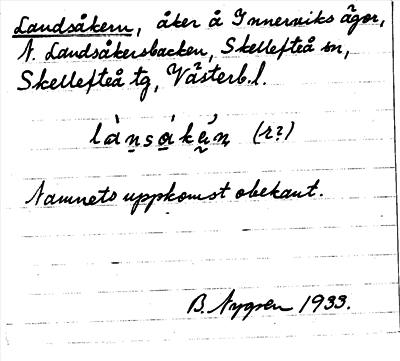 Landsåkern, åker å Innerviks ägor,
N. Landsåkersbacken, Skellefteå sn,
Skellefteå tg, Västerb.l.
(r?)
Namnets uppkomst obekant.
B. Nygren 1933.